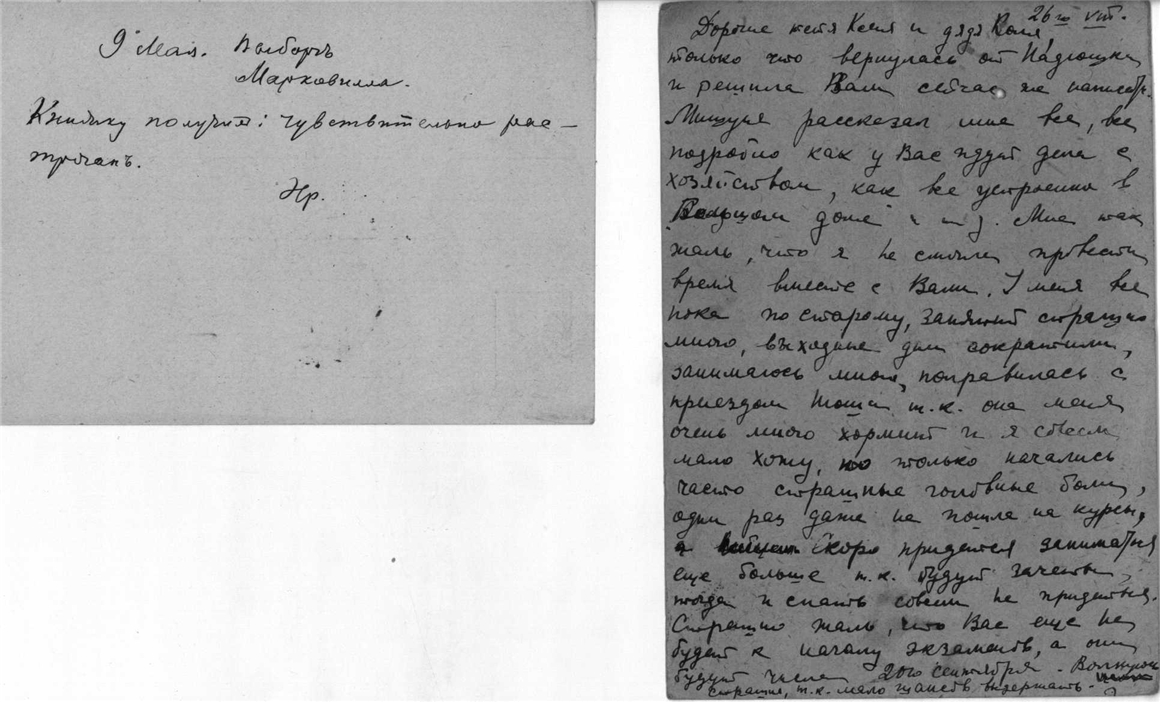 9 Мая. Выборгъ
Марковилла.
Книжку получилъ: чувствительно рас-
троганъ.
Нр.
26го VIII.
Дорогие тетя Ксеня и дядя Коля
только что вернулась от Надюшки
и решила Вам сейчас же написать.
Мишуня рассказал мне все, все
подробно как у Вас идут дела с
хозяйством, как все устроено в
Большом доме и т. д. Мне так
жаль, что я не смогла провести
время вместе с Вами. У меня все
пока по старому, занятий страшно
много, выходные дни сократили,
занимаюсь много, поправилась с
приездом Тоши т.к. она меня
очень много кормит и я совсем
мало хожу, но только начались
часто страшные головные боли,
один раз даже не пошла на курсы,
а скоро придется заниматься
еще больше т.к. будут зачеты,
тогда и спать совсем не придется.
Страшно жаль, что Вас еще не
будет к началу экзаменов, а они
будут числа 20го сентября. Волнуюсь
страшно, т.к. мало шансов выдержать.